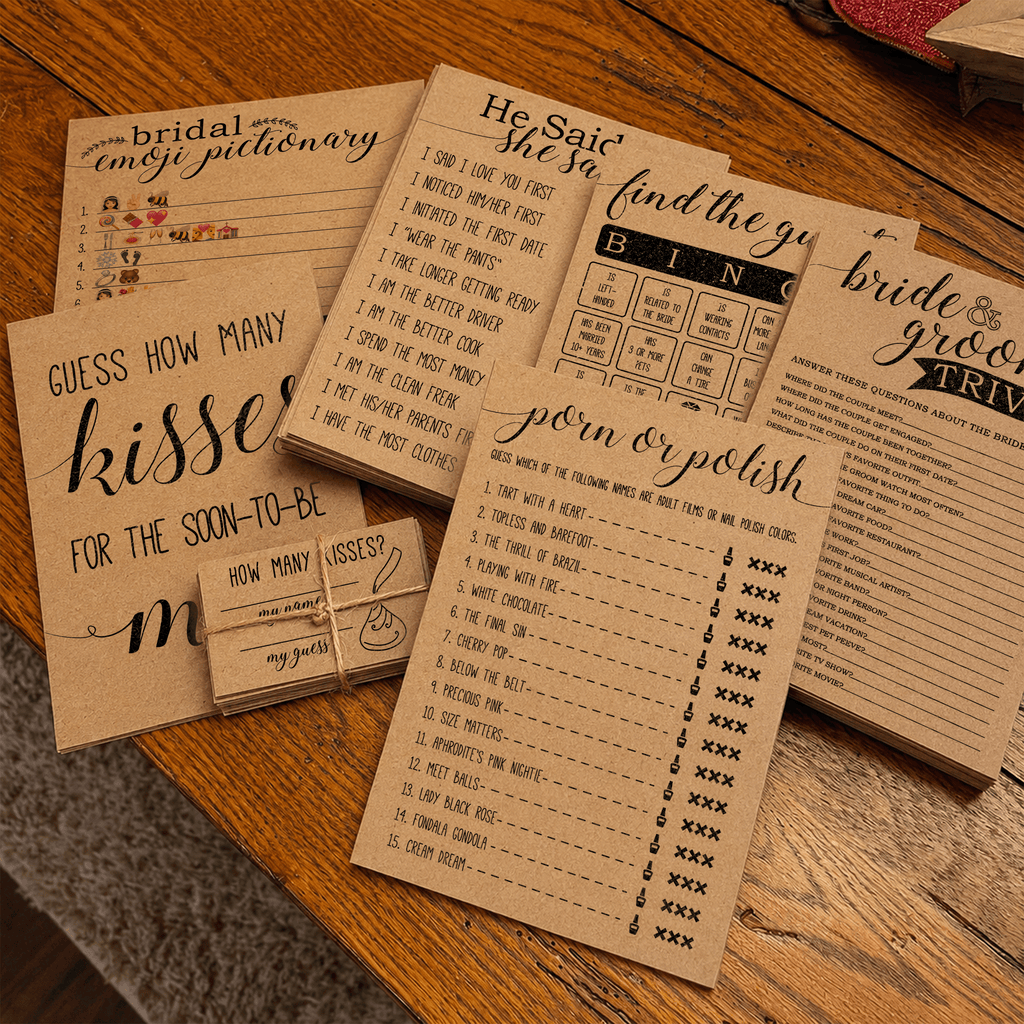 bridal
emoji pictionary
1.
2.
3.
4.
5.
6.
He Said
she sa
I SAID I LOVE YOU FIRST
I NOTICED HIM/HER FIRST
I INITIATED THE FIRST DATE
I "WEAR THE PANTS"
I TAKE LONGER GETTING READY
I AM THE BETTER DRIVER
I AM THE BETTER COOK
I SPEND THE MOST MONEY
I AM THE CLEAN FREAK
I MET HIS/HER PARENTS FIR
I HAVE THE MOST CLOTHES
find the gu
B I N G
IS LEFT-HANDED
IS RELATED TO THE BRIDE
IS WEARING CONTACTS
CAN MORE LAN
HAS BEEN MARRIED 10+ YEARS
HAS 3 OR MORE PETS
CAN CHANGE A TIRE
IS
IS THE
bride &
groo
TRIV
ANSWER THESE QUESTIONS ABOUT THE BRIDE
WHERE DID THE COUPLE MEET?
WHERE DID THE COUPLE GET ENGAGED?
HOW LONG HAS THE COUPLE BEEN TOGETHER?
WHAT DID THE COUPLE DO ON THEIR FIRST DATE?
DESCRIBE
'S FAVORITE OUTFIT
E GROOM WATCH MOST OFTEN?
FAVORITE THING TO DO?
DREAM CAR?
FAVORITE FOOD?
AVORITE RESTAURANT?
E WORK?
FIRST JOB?
AVORITE MUSICAL ARTIST?
VORITE BAND?
OR NIGHT PERSON?
VORITE DRINK?
EAM VACATION?
EST PET PEEVE?
MOST?
RITE TV SHOW?
RITE MOVIE?
GUESS HOW MANY
kisses
FOR THE SOON-TO-BE
m
HOW MANY KISSES?
my name
my guess
porn or polish
GUESS WHICH OF THE FOLLOWING NAMES ARE ADULT FILMS OR NAIL POLISH COLORS.
1. TART WITH A HEART XXX
2. TOPLESS AND BAREFOOT XXX
3. THE THRILL OF BRAZIL XXX
4. PLAYING WITH FIRE XXX
5. WHITE CHOCOLATE XXX
6. THE FINAL SIN XXX
7. CHERRY POP XXX
8. BELOW THE BELT XXX
9. PRECIOUS PINK XXX
10. SIZE MATTERS XXX
11. APHRODITE'S PINK NIGHTIE XXX
12. MEET BALLS XXX
13. LADY BLACK ROSE XXX
14. FONDALA GONDOLA XXX
15. CREAM DREAM XXX